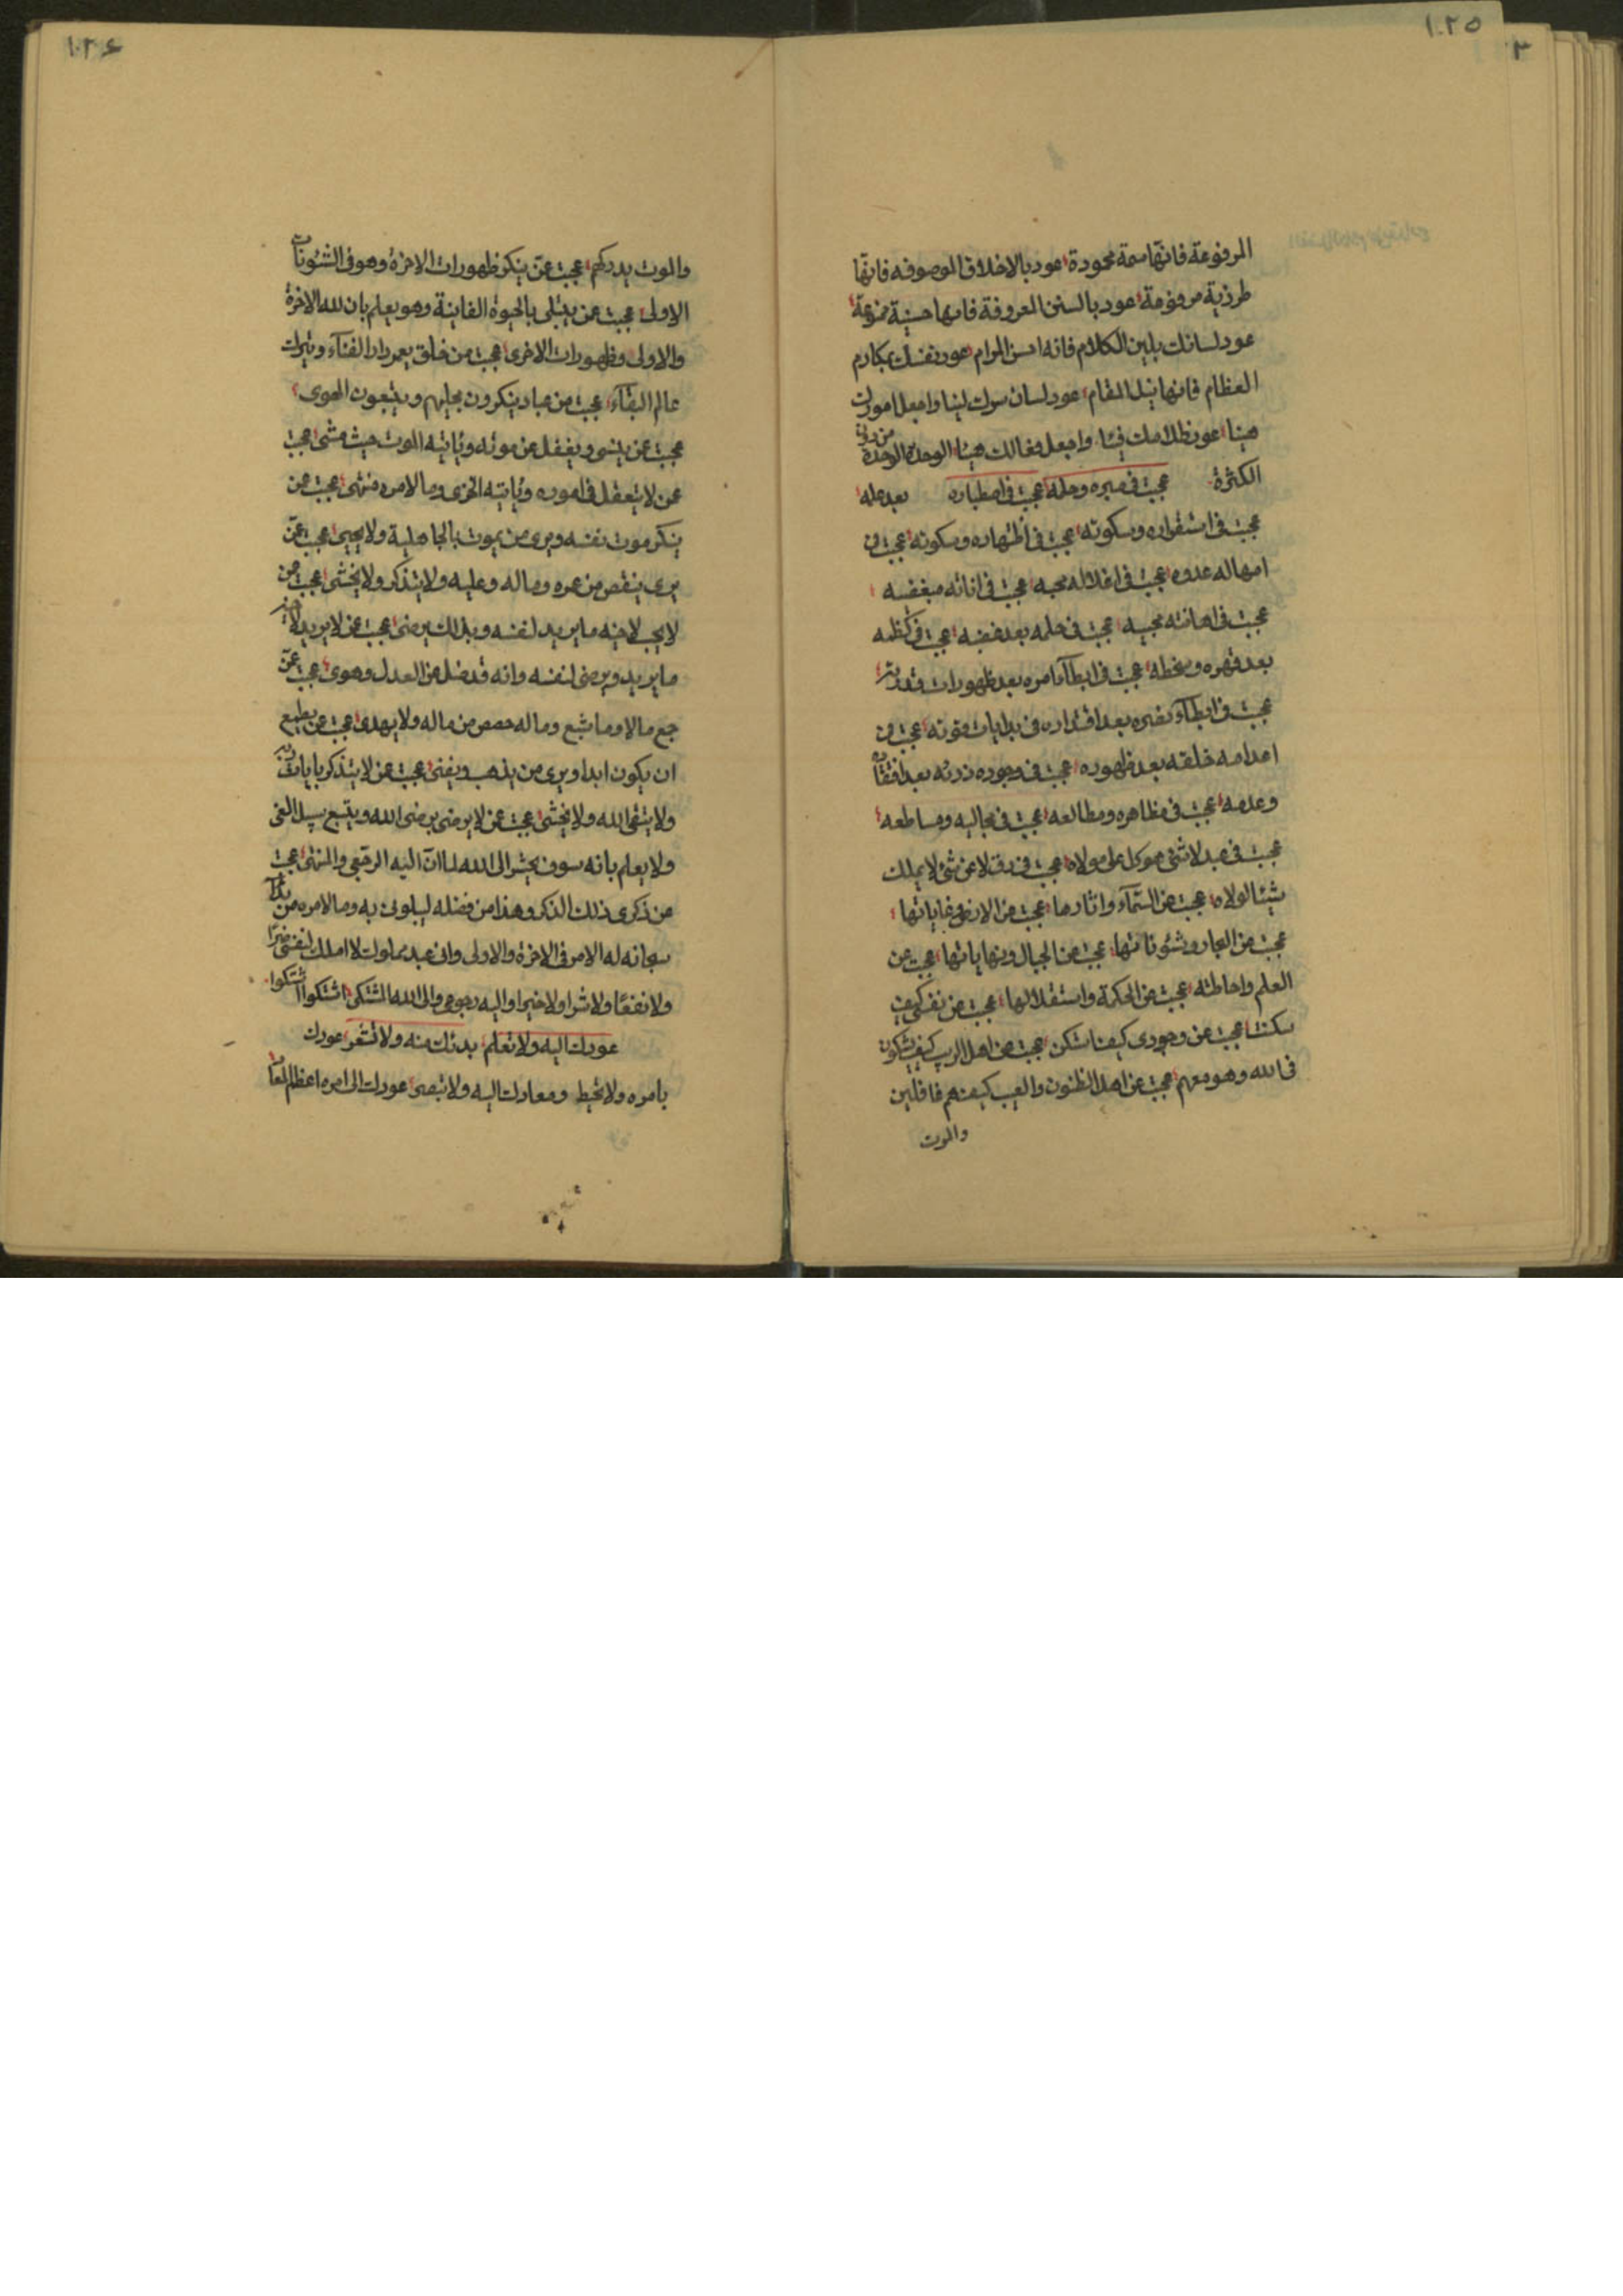 ١٠٢٥
المرفوعة فانها سمة محمودة عود بالاخلاق الموصوفه فانها
طرزية مرفوعة عود بالسنن المعروفة فانها حسنة
عود لسانك بلين الكلام فانه احسن المرام عود نفسك بمكارم
العظام فانها نيل المقام عود لسان سرك لينا واجعل امورك
هينا عون ظلامك فيئا واجعل فعالك هينا الوحدة الوحدة من دون
الكثرة عجبت فى صبره وحلمه عجبت فى اصطباره بعد علمه
عجبت فى استقراره وسكونه عجبت فى اشتهاره وسكونه عجبت فى
امهاله عدوه عجبت فى اغلاله محبه عجبت فى اناته مبغضه
عجبت فى اهانته محبيه عجبت فى حلمه بعد غضبه عجبت فى كظمه
بعد قهره وسخطه عجبت فى ابطآء امره بعد ظهورات قدرته
عجبت فى ابطآء نصره بعد اقتداره فى بدايات قوته عجبت فى
اعدامه خلقه بعد ظهوره عجبت فى وجوده ذرئه بعد افتقاده
وعدمه عجبت فى مظاهره ومطالعه عجبت فى مجاليه ومساطعه
عجبت فى عبد لا شئ هو كل على مولاه عجبت فى رق لا عن شئ لا يملك
شيئا لولاه عجبت من السمآء واثارها عجبت من الارض وغاياتها
عجبت من البحار وشئوناتها عجبت من الجبال ونهاياتها عجبت من
العلم واحاطته عجبت من الحكمة واستقلالها عجبت من نفسى كيف
سكنت عجبت من وجودى كيف استكن عجبت من اهل الريب كيف يشكون
فى الله وهو معهم عجبت من اهل الظنون والعيب كيف هم غافلين
والموت
١٠٢٤
والموت يدركهم عجبت عمن ينكر ظهورات الاخرة وهو فى الشئونات
الاولى عجبت عمن يبتلى بالحيوة الفانية وهو يعلم بان لله الاخرة
والاولى وظهورات الاخرى عجبت من خلق يعمر دار الفنآء ويترك
عالم البقآء عجبت من عباد ينكرون بجليهم ويتبعون الهوى
عجبت عمن ينسى ويغفل عن موته ويأتيه الموت حيث مشى عجبت
عمن لا يتعقل فى اموره ويأتيه الخزى وما لامره منتهى عجبت عمن
ينكر موت نفسه ويرى من يموت بالجاهلية ولا يحيى عجبت عمن
يرى ينقص من عمره وماله وعليه ولا يتذكر ولا يخشى عجبت عمن
لا يحب لاخيه ما يريد لنفسه وبذلك يرضى عجبت عمن لا يريد لاخيه
ما يريد ويرضى لنفسه وانه قد ضل عن العدل وهوى عجبت عمن
جمع مالا وما شبع وماله حصص من ماله ولا يهدى عجبت عمن يطمع
ان يكون ابدا ويرى من يذهب ويفنى عجبت عمن لا يتذكر بايات ربه
ولا يتقى الله ولا يخشى عجبت عمن لا يرضى برضى الله ويتبع سبل الغى
ولا يعلم بانه سوف يحشر الى الله لما ان اليه الرجعى والمنتهى عجبت
من ذكرى ذلك الذكر وهذا من فضله ليبلونى به وما لامره من بدآء
سبحانه له الامر فى الاخرة والاولى وانى عبد مملوك لا املك لنفسى ضرا
ولا نفعا ولا شرا ولا خيرا واليه رجوعى والى الله المشتكى اشتكوا اشتكوا
عودك اليه ولا تعلم بدئك منه ولا تشعر عودك
بامره ولا تحيط ومعادك اليه ولا تبصر عودك الى امره اعظم المعاد